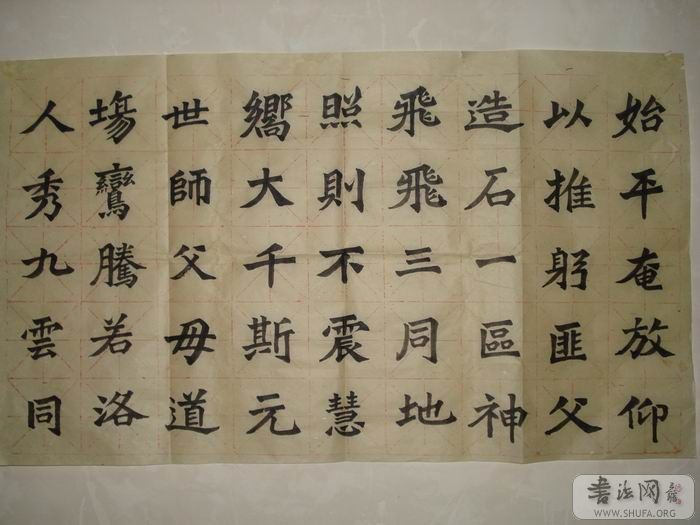 始平奄放仰
以推躬匪父
造石一區神
飛飛三同地
照則不震慧
嚮大千斯元
世師父母道
塲鸞騰若洛
人秀九雲同
書法网
WWW.SHUFA.ORG